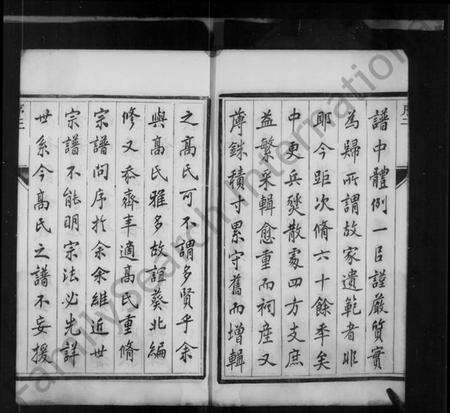 譜中體例一以謹嚴質實
為歸所謂故家遺範者非
耶今距次脩六十餘年矣
中更兵燹散處四方支庶
益繁采輯愈重而祠產又
薄銖積寸累守舊而增輯
之高氏可不謂多賢乎余
與高氏雅多故誼葵北編
修又忝齊年適高氏重脩
宗譜問序於余余維近世
宗譜不能明宗法必先詳
世系今高氏之譜不妄援
FamilySearch International